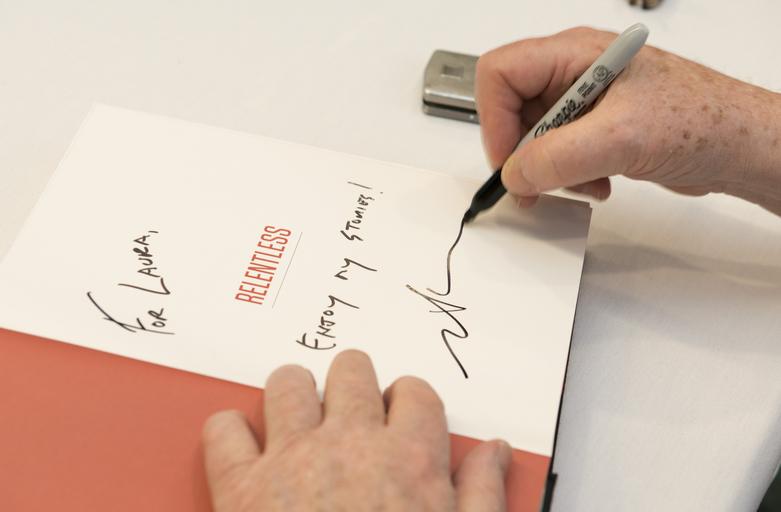 For Laura,
RELENTLESS
Enjoy my stories!
Sharpie